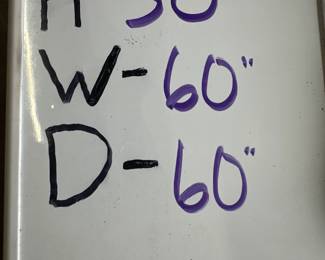 W-60"
D-60"